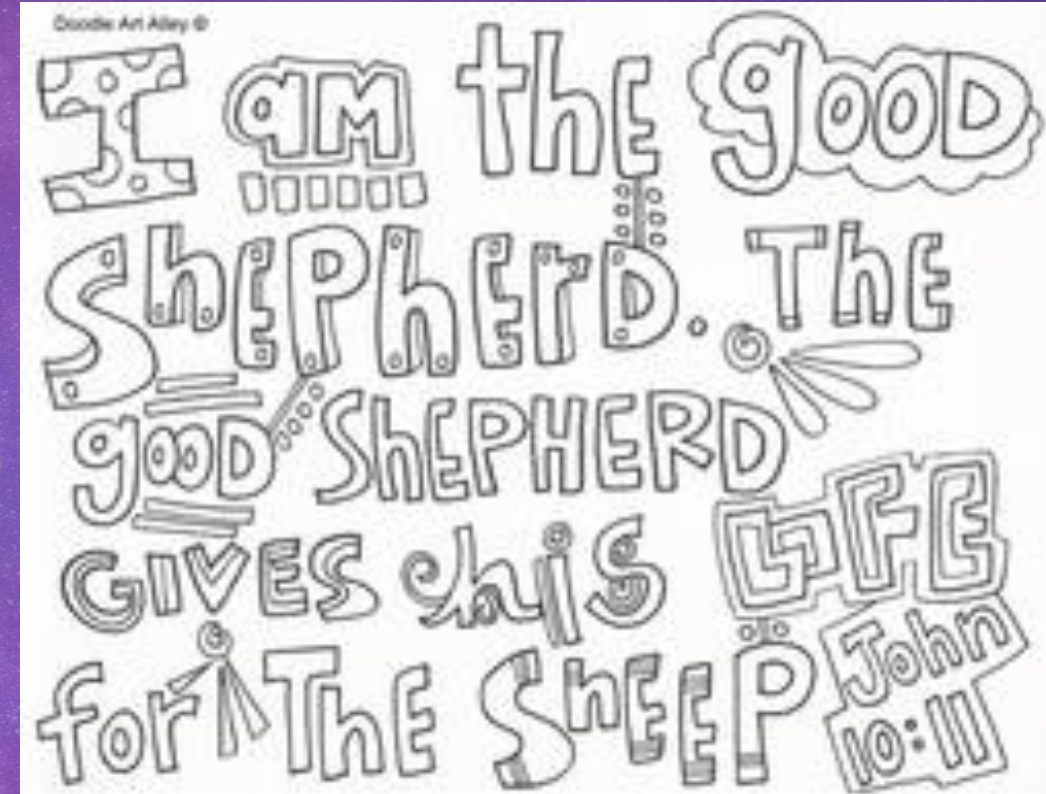 Doodle Art Alley ©
I am the good
ShEPhErD. ThE
gooD ShEPHERD
GIVES his LIFE
for ThE ShEEP John
10:11